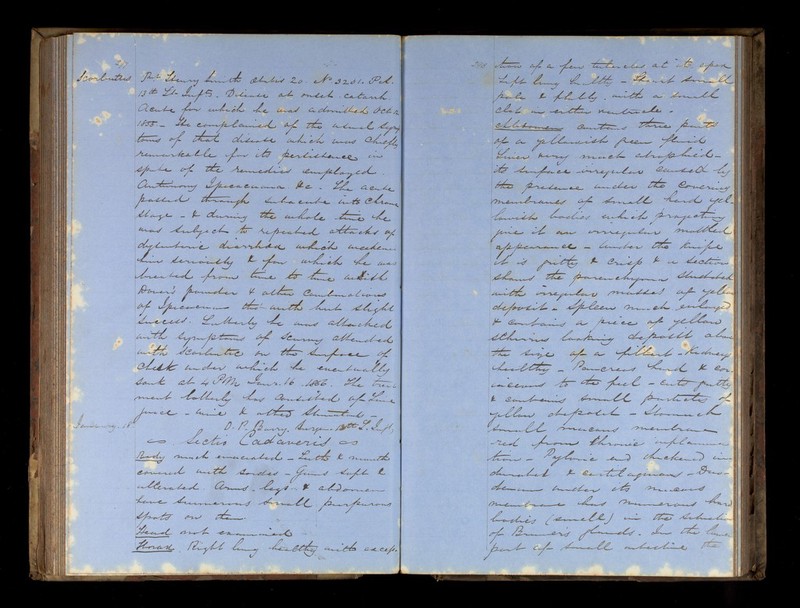 Pvt Henry Smith Ætatis 20 No 3234 Pvt
13th Lt Infty. Disease at onset catarrh
Acute for which he was admitted Oct 2
1855 - He complained of the usual symp
toms of that disease which was chiefly
remarkable for its persistence in
spite of the remedies employed
Antimony Ipecacuana &c. The acute
passed through subacute into chronic
stage - & during the whole time he
was subject to repeated attacks of
dysenteric diarrhœa which weakened
him seriously & for which he was
treated from time to time with
Dover's powder & other combinations
of Ipecacuana but with but slight
success. Latterly he was attacked
with symptoms of scurvy attended
with on the surface of
chest under which he eventually
sunk at 4 PM Jany 16 1856. The treat
ment latterly has consisted of lime
juice - wine & other
O. P. Barry. Surgeon 13th L. Infy
January 18
Sectio Cadaveris
Body much emaciated - Teeth & mouth
covered with sordes - Gums soft &
ulcerated Arms, legs & abdomen
have numerous small purpurous
spots on them
Head not examined
Thorax Right lung healthy with excep
tion of a few tubercles at its apex
Left lung healthy - Heart small
pale & flabby, with a small
clot in either ventricle.
Abdomen contains three pints
of a yellowish green fluid
Liver very much atrophied -
its surface irregular caused by
the presence under the covering
membranes of small hard yel
lowish bodies which projecting
give it an irregular
appearance - under the knife
it is gritty & crisp & a section
shews the parenchyma studded
with irregular masses of yellow
deposit - Spleen much enlarged
& contains a piece of yellow
schirrus looking deposit about
the size of a filbert - Kidneys
healthy - Pancreas hard &
to the feel - cuts gritty
& contains small particles of
yellow deposit - Stomach
small mucous membrane
red from chronic inflamma
tion - Pyloric end thickened in
durated & cartilaginous - Duo
denum under its mucous
membrane has numerous hard
bodies (small) in the situation
of Brunner's glands. In the lower
part of small intestine the